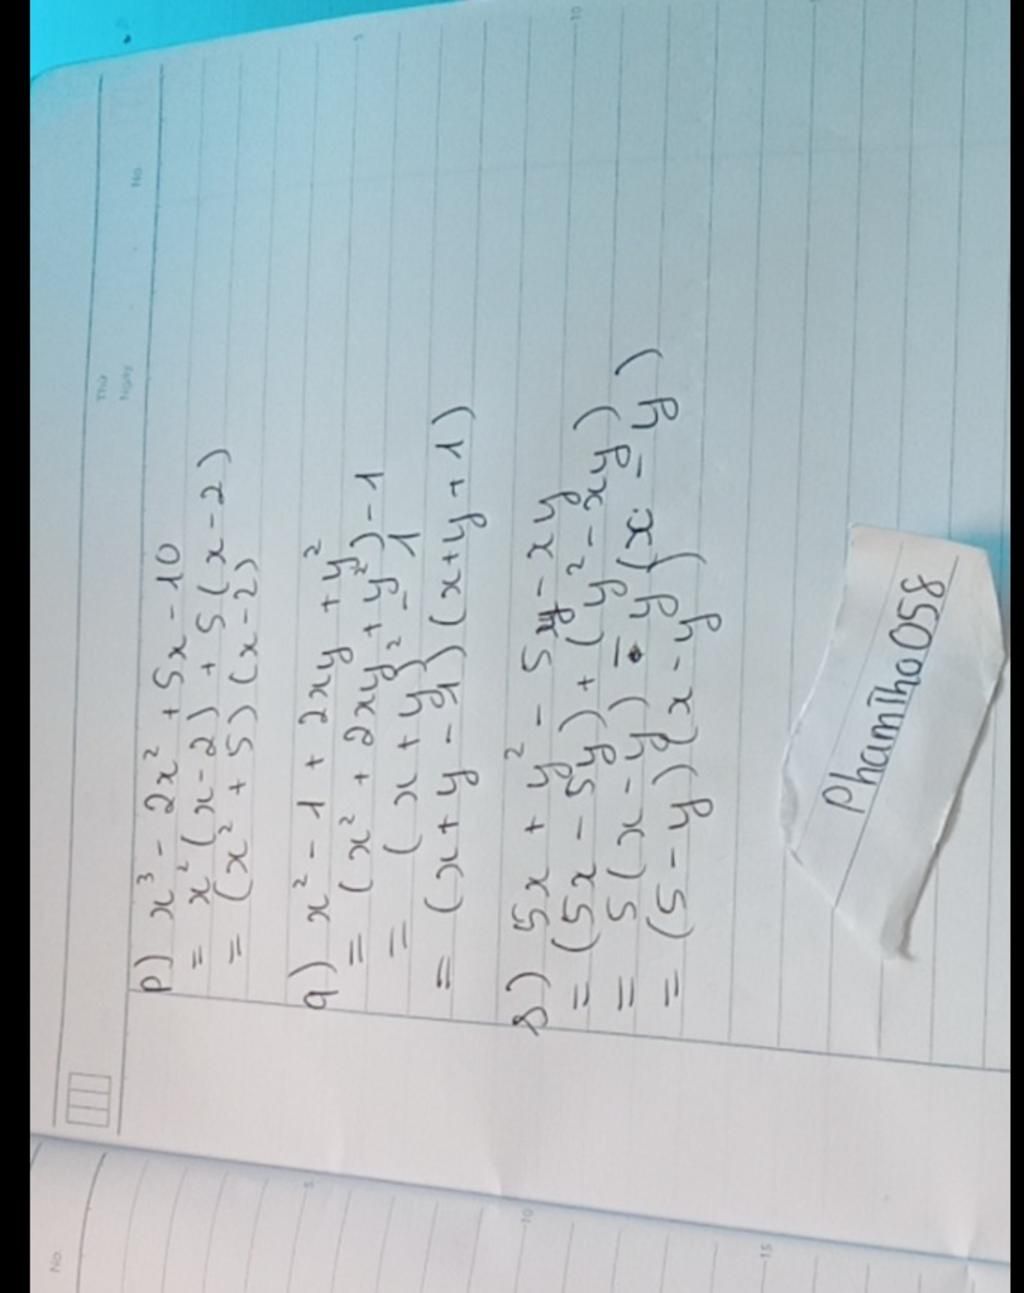 Thứ
Ngày
No.
p) x³ - 2x² + 5x - 10
= x²(x - 2) + 5(x - 2)
= (x² + 5)(x - 2)
q) x² - 1 + 2xy + y²
= (x² + 2xy + y²) - 1
= (x + y)² - 1
= (x + y - 1)(x + y + 1)
s) 5x + y² - 5y - xy
= (5x - 5y) + (y² - xy)
= 5(x - y) - y(x - y)
= (5 - y)(x - y)
Phamiho058
No.
5
10
15
5
10